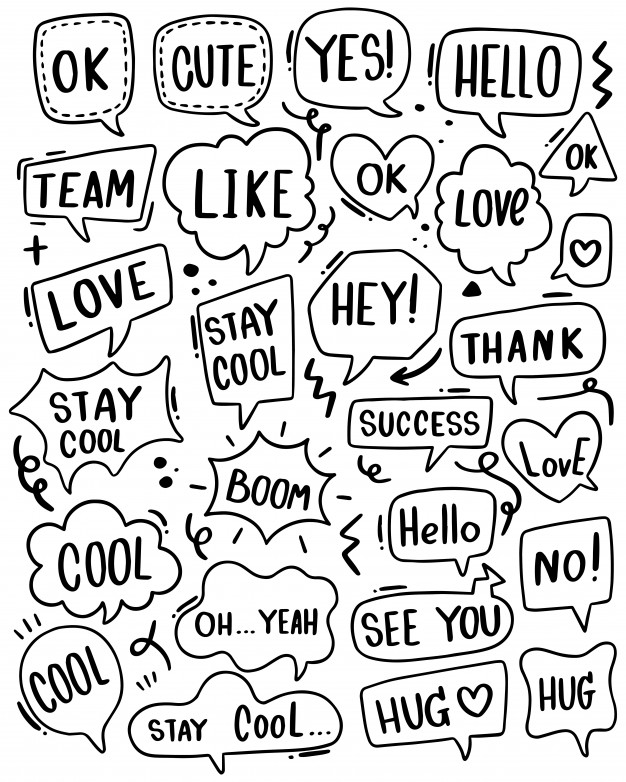 OK
CUTE
YES!
HELLO
TEAM
LIKE
OK
LOVe
OK
LOVE
STAY
COOL
HEY!
THANK
STAY
COOL
SUCCESS
LOvE
BOOM
Hello
COOL
NO!
OH... YEAH
SEE YOU
COOL
STAY COOL...
HUG
HUG